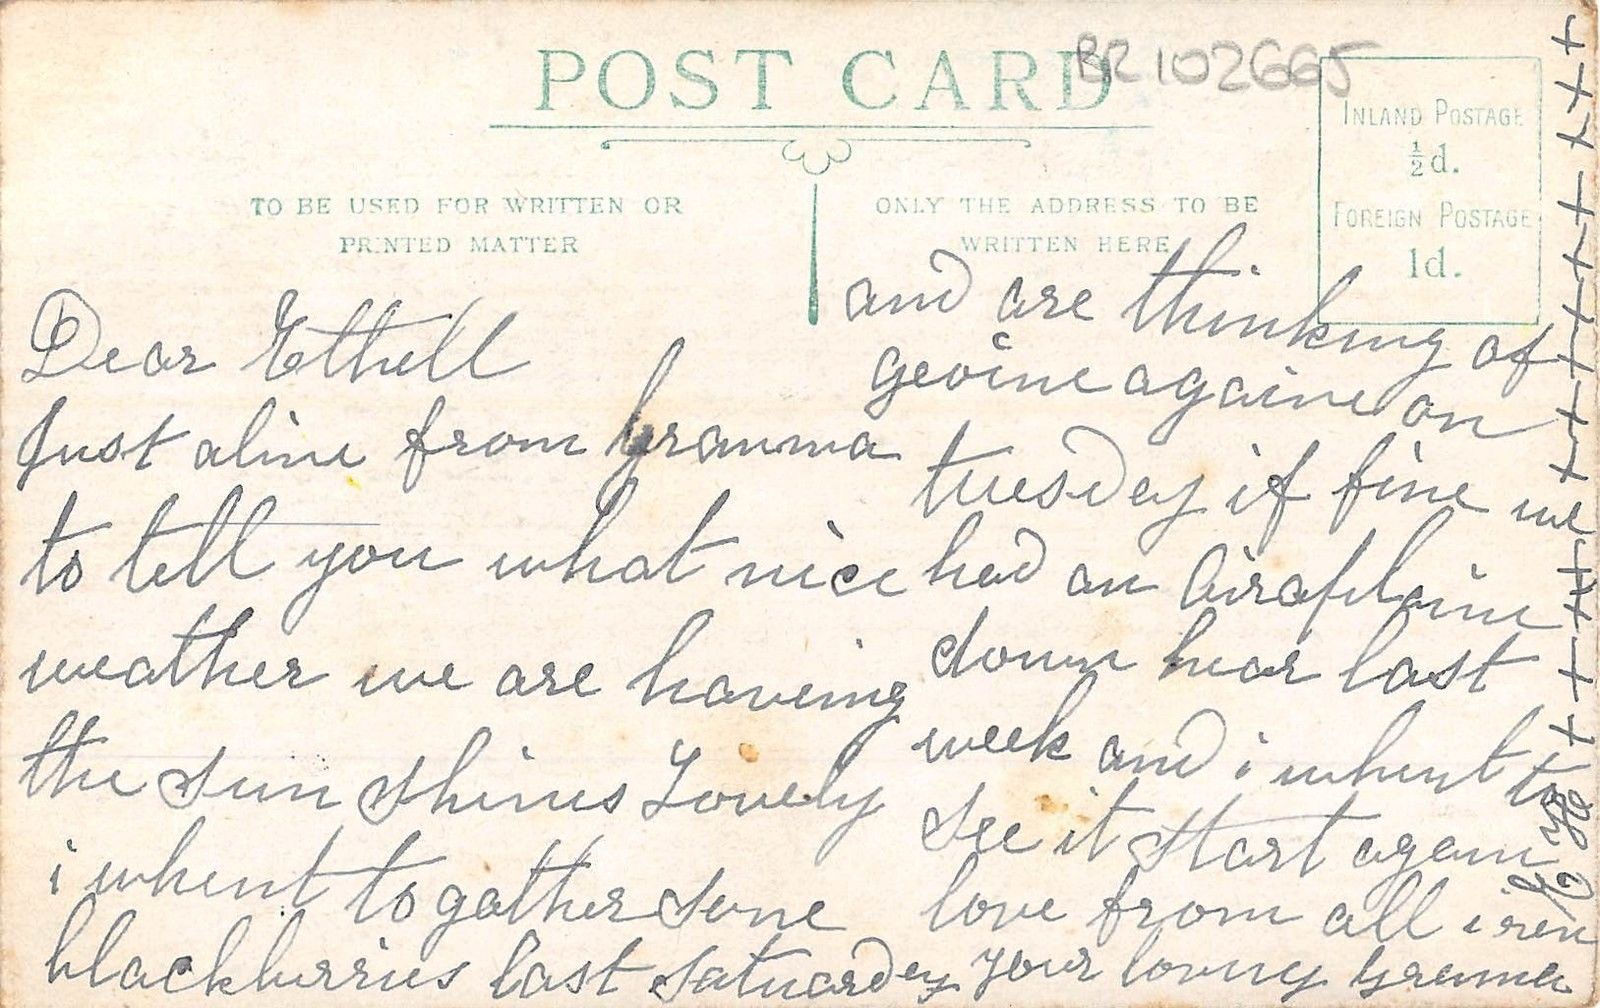 POST CARD
BR 102665
INLAND POSTAGE
½d.
FOREIGN POSTAGE
1d.
TO BE USED FOR WRITTEN OR
PRINTED MATTER
ONLY THE ADDRESS TO BE
WRITTEN HERE
Dear Ethell
Just aline from granma
to tell you what nice
weather we are haveing
the sun shines Lovely
i whent to gather some
blackburries last satuardey
and are thinking of
geoine againe on
tuesday if fine we
had an Airaplaine
down hear last
week and i whent to
see it start again
love from all
your loving grama
+ + + + + + + + + + + + + + +